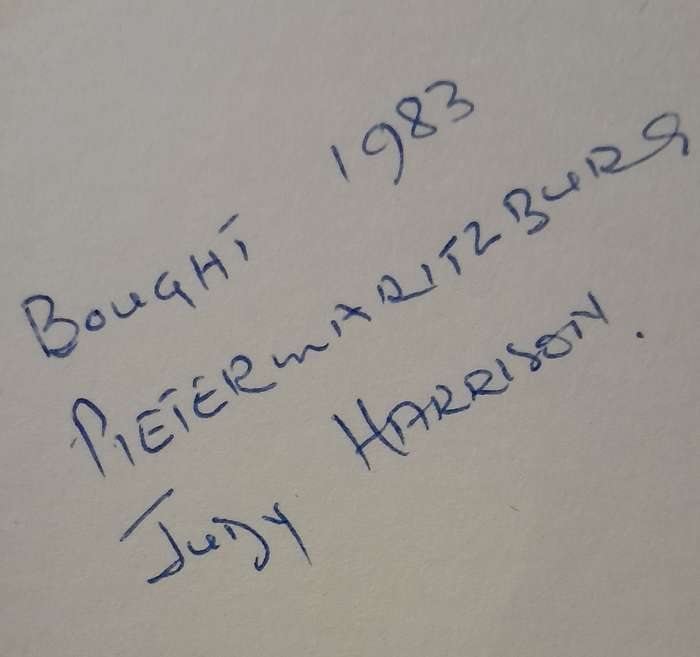 BOUGHT 1983
PIETERMARITZBURG
JUDY HARRISON.